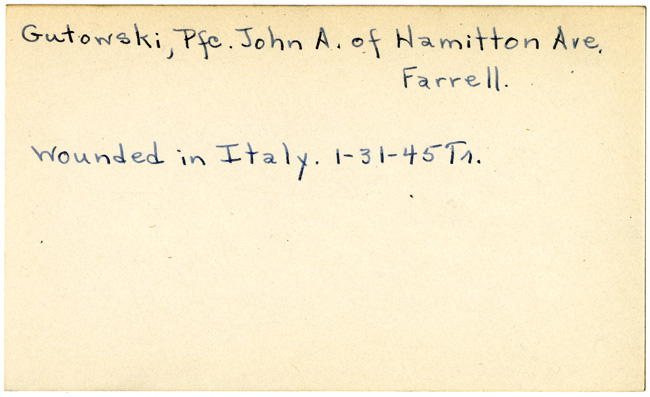 Gutowski, Pfc. John A. of Hamitton Ave.
Farrell.
Wounded in Italy. 1-31-45 Tr.